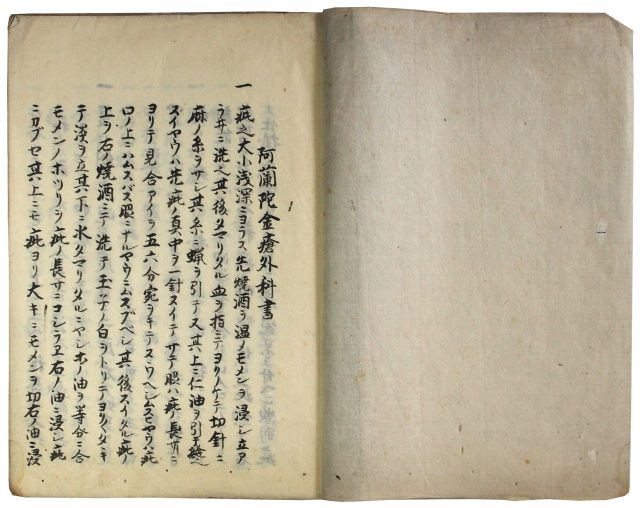 阿蘭陀金瘡外科書
一 疵之大小浅深ニヨラス先焼酒ヲ温メモメンヲ浸シ立ア
ラサニ洗之其後タマリタル血ヲ指ニテヨリノケテ切針ニ
麻ノ糸ヲサシ其糸ニ蝋ヲ引テ又其上ニ仁油ヲ引キ縫ヘ
スイヤウハ先疵ノ真中ヲ一針スイテサテ眼ハ疵ノ長サニ
ヨリテ見合アイヲ五六分宛ヲキテヌウヘシムスヒヤウハ疵
口ノ上ニハムスバス眼ニナルヤウニムスブベシ其後スイタル疵ノ
上ヲ右ノ焼酒ニテ洗テ玉子ノ白ヲトリテヨクタヽキ
テ淡ヲ立其下ニ水タマリタルニヤシホノ油ヲ等分ニ合
モメンノホツリヲ疵ノ長サニコシラヱ右ノ油ニ浸シ疵
ニカブセ其上ニモ疵ヨリ大キニモメンヲ切右ノ油ニ浸